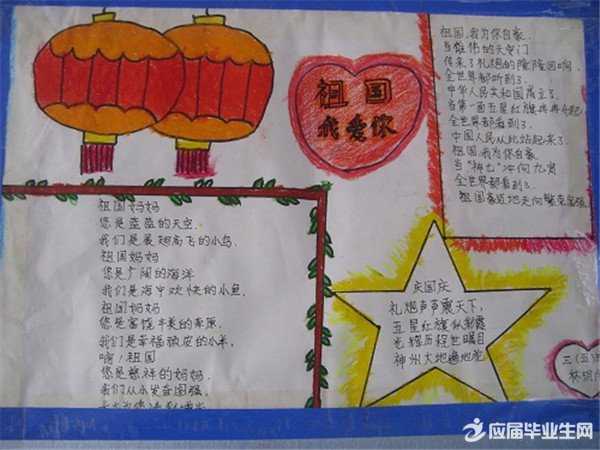 祖国
我爱你
祖国,我为你自豪.
当雄伟的天安门
传来了礼炮的隆隆回响
全世界都听到了.
中华人民共和国成立了.
当第一面五星红旗冉冉升起
全世界都看到了.
中国人民从此站起来了.
祖国,我为你自豪.
当"神七"冲向九霄
全世界都看到了.
祖国奏近地走向繁荣富强
祖国妈妈
您是蓝蓝的天空.
我们是展翅高飞的小鸟.
祖国妈妈
您是广阔的海洋
我们是海中欢快的小鱼.
祖国妈妈
您是富饶丰美的草原.
我们是幸福顽皮的小羊.
啊!祖国
您是慈祥的妈妈.
我们从小发奋图强.
庆国庆
礼炮声声震天下,
五星红旗似彩霞
光辉历程世瞩目
神州大地遍地花
三(五)
林
应届毕业生网